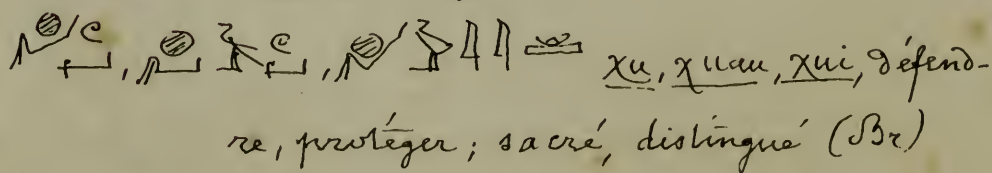 χu, χuau, χui, défend-
re, protéger; sacré, distingué (Br)